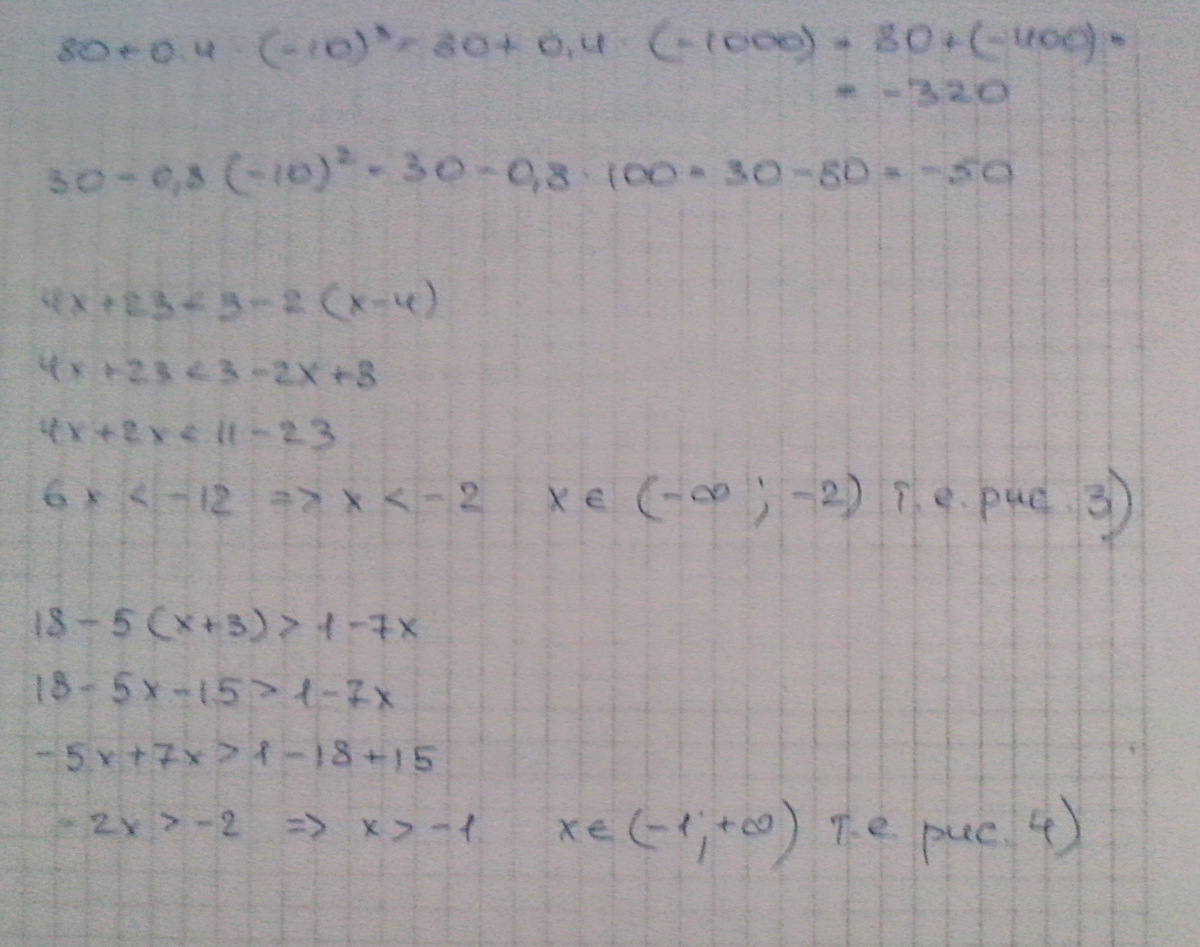 80+0.4 · (-10)³ = 80+0,4 · (-1000) = 80+(-400) =
= -320
30-0,8 (-10)² = 30-0,8 · 100 = 30-80 = -50
4x+23<3-2(x-4)
4x+23<3-2x+8
4x+2x<11-23
6x < -12 => x < -2 x ∈ (-∞ ; -2) т.е. рис. 3)
18-5(x+3)>1-7x
18-5x-15>1-7x
-5x+7x>1-18+15
-2x>-2 => x>-1 x∈(-1;+∞) т.е. рис. 4)